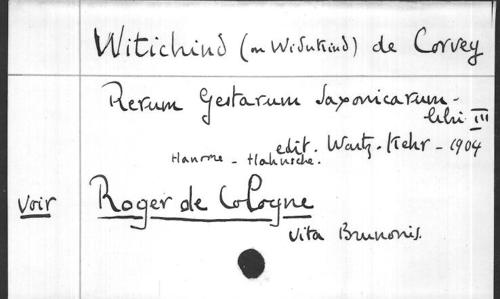 Witichind (ou Widukind) de Corvey
Rerum Gestarum Saxonicarum -
libri III
edit. Waitz. Kehr - 1904
Hanovre - Hahnsche.
voir Roger de Cologne
Vita Brunonis.